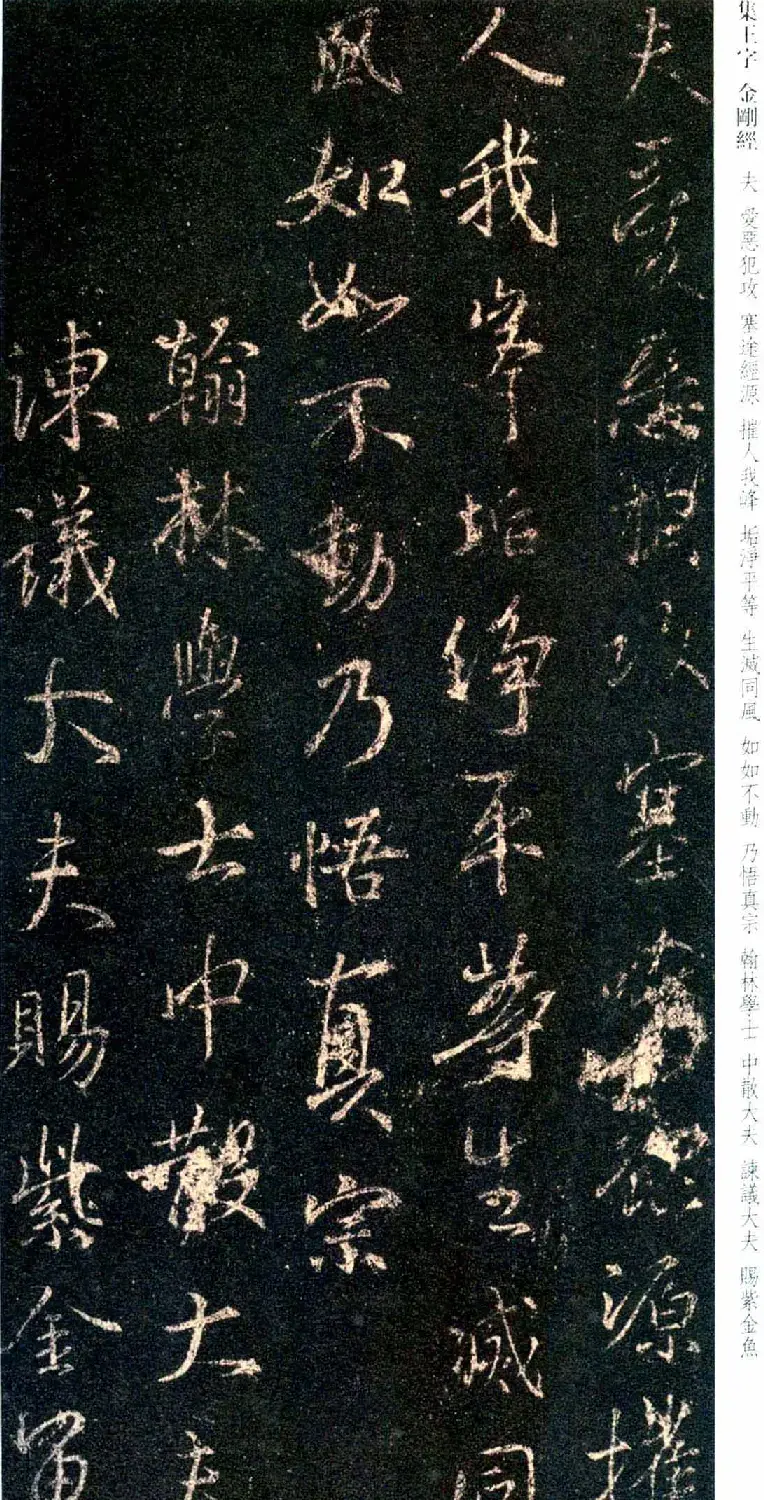 集王字 金剛經 夫 愛惡犯攻 塞途經源 摧人我峰 垢淨平等 生滅同風 如如不動 乃悟真宗 翰林學士 中散大夫 諫議大夫 賜紫金魚
夫愛惡相攻塞源摧
人我峯垢淨平等生滅同
風如如不動乃悟真宗
翰林學士中散大夫
諫議大夫賜紫金魚